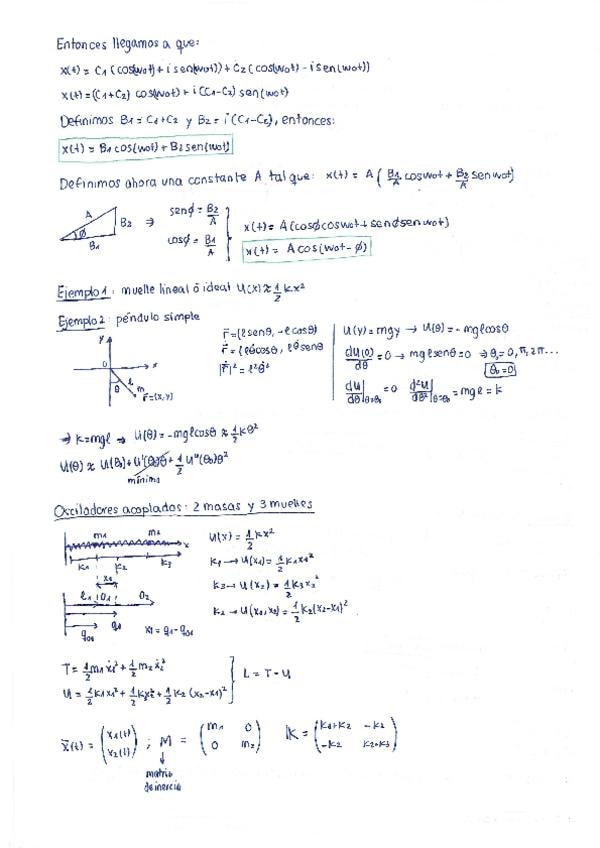 Entonces llegamos a que:
x(t) = C1 (cos(wot) + i sen(wot)) + C2 (cos(wot) - i sen(wot))
x(t) = (C1+C2) cos(wot) + i (C1-C2) sen(wot)
Definimos B1 = C1+C2 y B2 = i (C1-C2), entonces:
x(t) = B1 cos(wot) + B2 sen(wot)
Definimos ahora una constante A tal que: x(t) = A ( B1/A cos wot + B2/A sen wot)
A B2 ϕ B1 ⇒ senϕ = B2/A
cosϕ = B1/A
x(t) = A (cosϕ cos wot + senϕ sen wot)
x(t) = A cos(wot - ϕ)
Ejemplo 1: muelle lineal ó ideal U(x) ≈ 1/2 kx²
Ejemplo 2: péndulo simple
y x O θ l m r̄ = (x,y)
r̄ = (l senθ, -l cosθ)
ṙ = (lθ̇ cosθ, lθ̇ senθ
|ṙ|² = l²θ̇²
U(y) = mgy → U(θ) = - mgl cosθ
dU(θ)/dθ = 0 → mgl senθ = 0 ⇒ θ0 = 0, π, 2π...
θ0 = 0
dU/dθ|θ=θ0 = 0 d²U/dθ²|θ=θ0 = mgl = k
⇒ k = mgl ⇒ U(θ) = - mgl cosθ ≈ 1/2 kθ²
U(θ) ≈ U(θ0) + U'(θ0)θ + 1/2 U''(θ0)θ²
mínimo
Osciladores acoplados: 2 masas y 3 muelles
m1 m2 x
k1 k2 k3
x1
l1 O1 O2
q1
q01 x1 = q1 - q01
U(x) = 1/2 kx²
k1 → U(x1) = 1/2 k1x1²
k3 → U(x2) = 1/2 k3x2²
k2 → U(x1,x2) = 1/2 k2(x2-x1)²
T = 1/2 m1ẋ1² + 1/2 m2ẋ2²
U = 1/2 k1x1² + 1/2 k3x2² + 1/2 k2 (x2-x1)²
L = T - U
x̄(t) = (x1(t) x2(t)) ; M = (m1 0 0 m2) K = (k1+k2 -k2 -k2 k2+k3)
matriz
de inercia